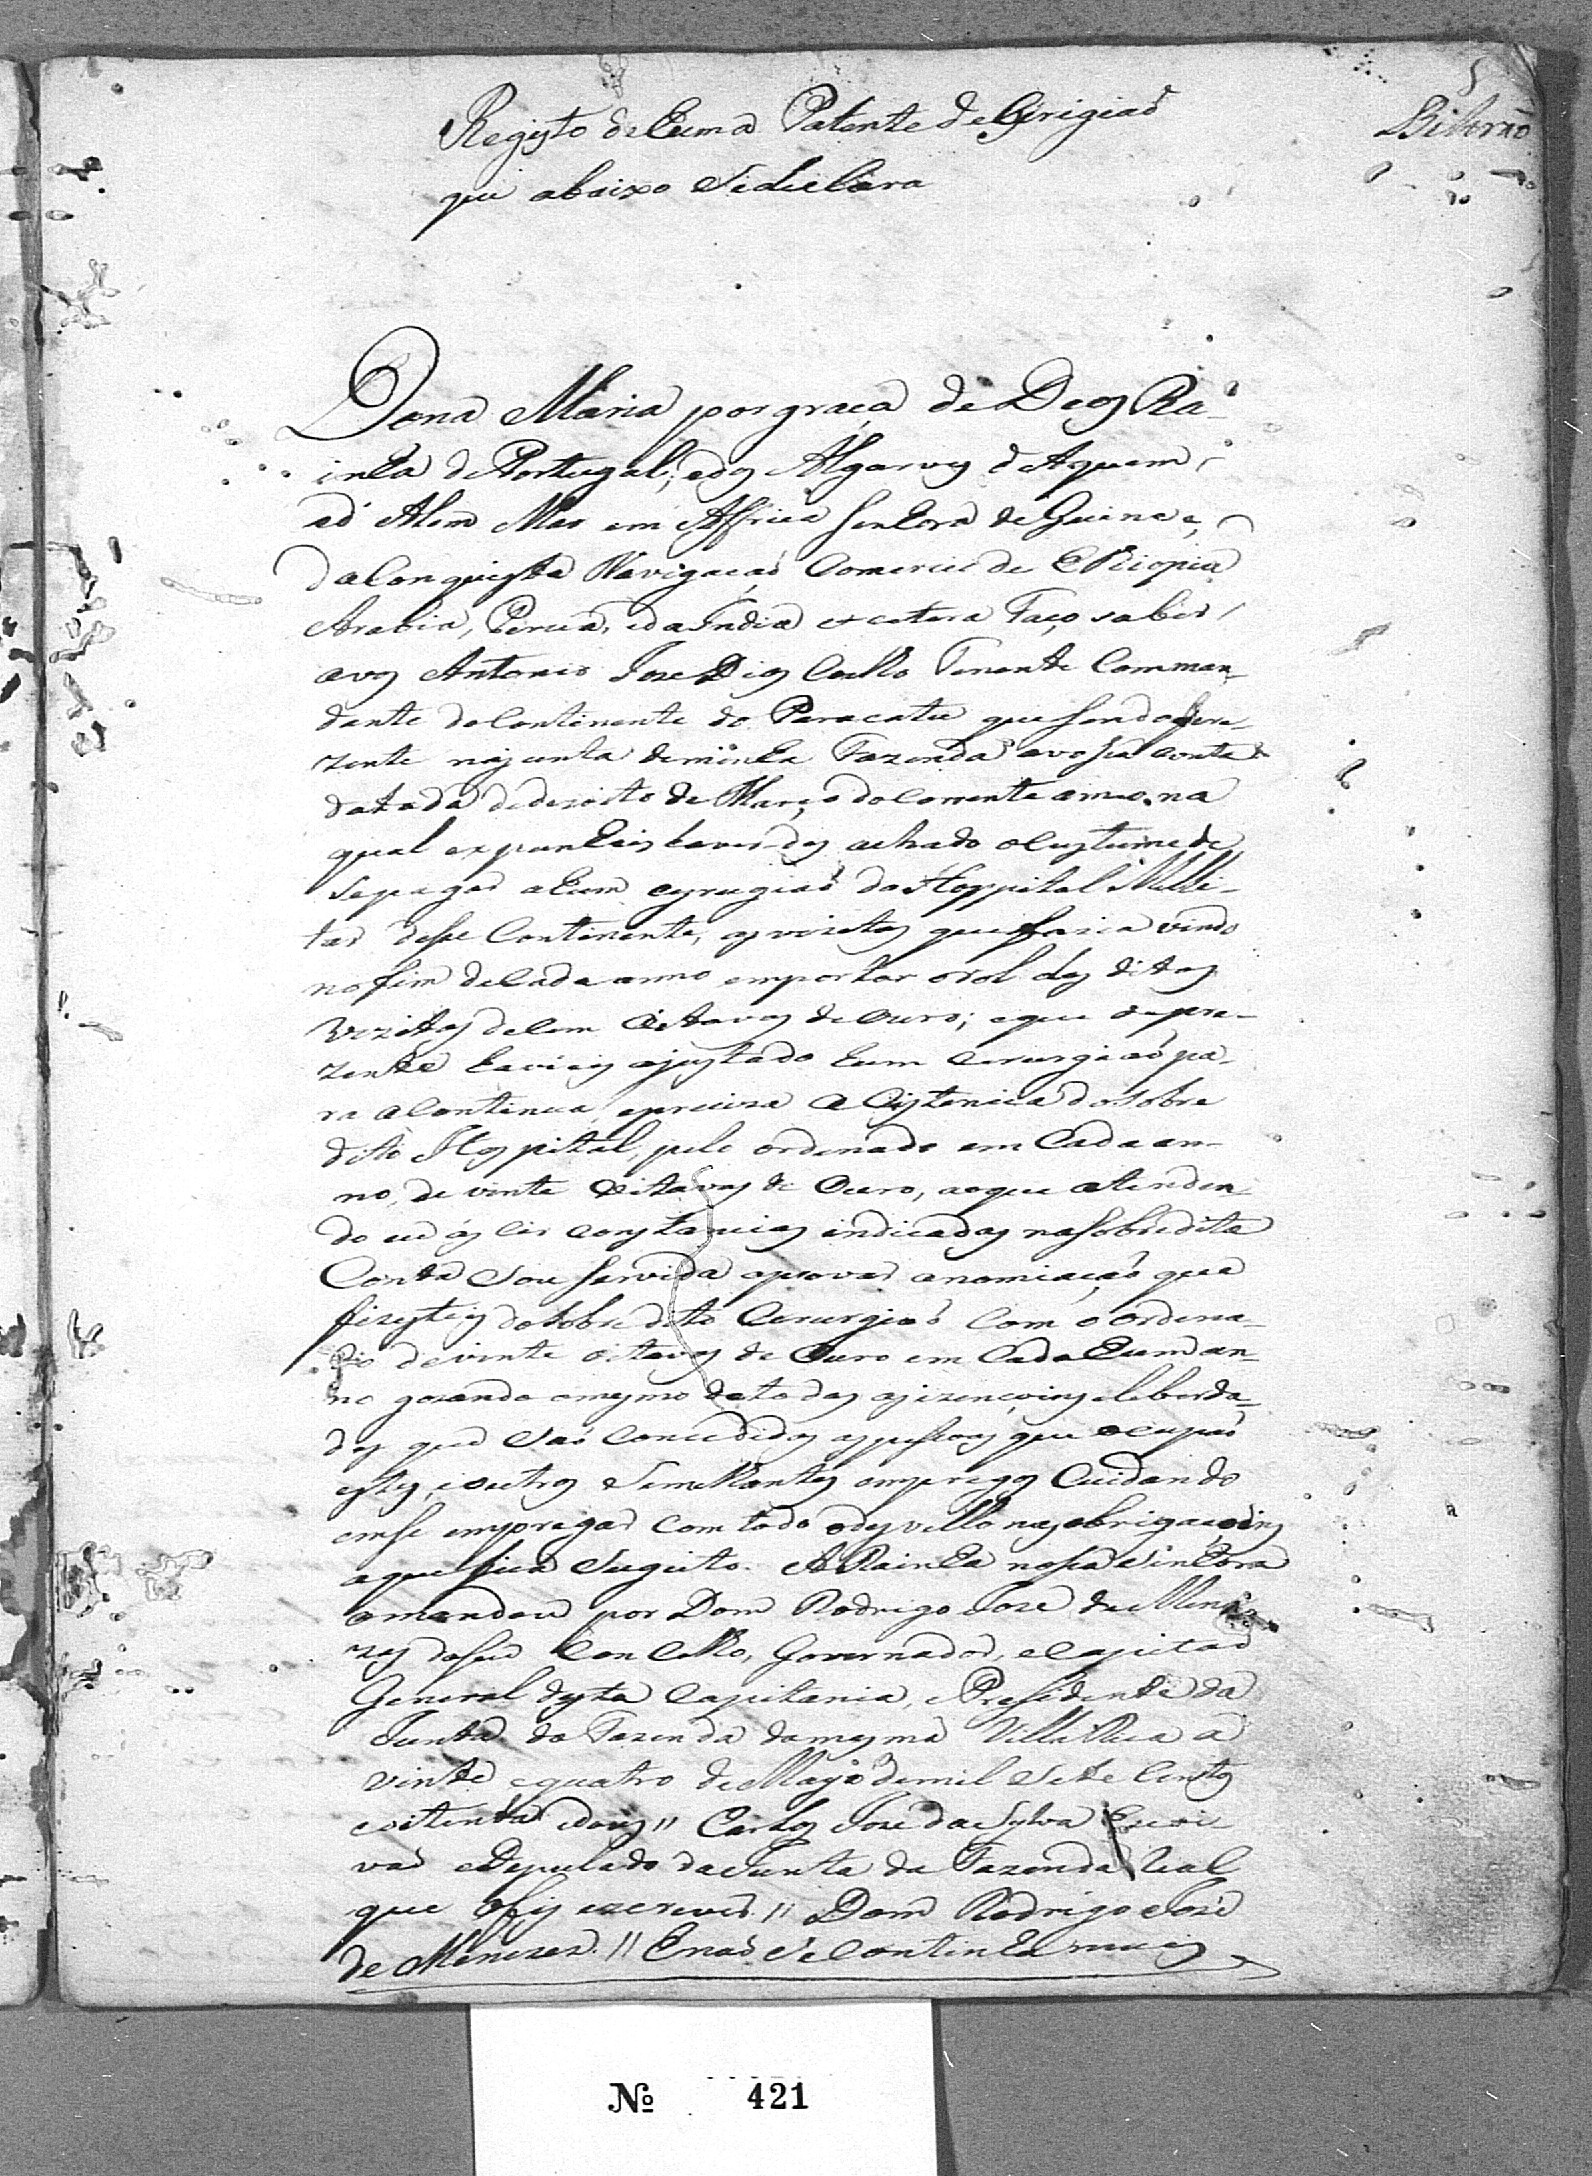 5
Bitorño
Registo de huma Patente de Cirigiaó
que abaixo Sedeclara
Dona Maria por graça de Deos Ra-
inha de Portugal, edos Algarves d'Aquem,
ed'Alem Mar em Affrica Senhora de Guine e,
da Conquista Navigaçaó Comercio de Ethiopia
Arabia, Percia, eda India et cetera Faço saber,
avos Antonio Joze Dias Coelho Tenente Comman-
dante do Continente do Paracatu que sendo pre-
zente najunta deminha Fazenda avossa conta
datada dedezoito de Março do Corrente anno na
qual expunheis haver-des achado o Custume de
Sepagar ahum cyrugiaó do Hospital Milli-
tar desse Continente, as vizitas que fazia vindo
no fim decada anno emportar o rol das ditas
Vezitas de Cem Oitavas de Ouro; e que de pre-
zente havieis ajustado hum Cerurgiaó pa-
ra a Continua, epreciza Acistencia do sobre
dito Hospital, pelo ordenado em Cada an-
no, de vinte Oitavas de Ouro, aoque atenden-
do eu ás circonstancias indicadas nasobredita
Conta Sou servida aprovar anomiaçaó que
fizesteis dosobredito Cerurgiaó Com o Ordena-
do devinte oitavas de Ouro em Cada hum an-
no gozando omesmo detodas asizençoins eleberda-
des que Saó Concedidas aspessoas que ocupaó
estes, eoutros Semelhantes empregos Cuidando
emse empregar Com todo odesvello nas obrigaçoins
aque fica Sugeito. A Rainha nossa Sinhora
amandou por Dom Rodrigo Joze de Mene-
zes doseu Concelho, Governador, eCapitaó
General desta Capitania, e Presidente da
Junta da Fazenda damesma Villa Rica a
vinte equatro de Mayo demil Sete Centos
eoitenta edous // Carlos Joze da Sylva Escri-
vaó eDeputado da Junta da Fazenda Real
que ofis escrever. // Dom Rodrigo Jozé
de Menezes. // Enaó Se Continha mais
Nº 421